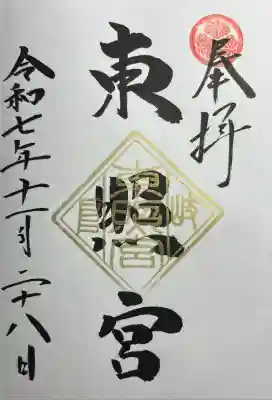 奉拝
東照宮
令和七年十一月二十八日